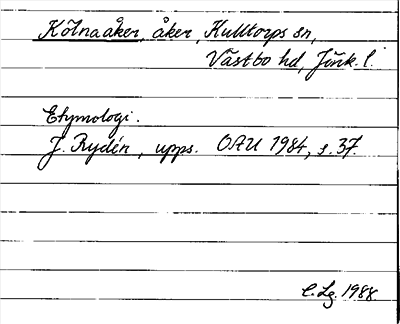 Kölnaåker, åker, Kulltorps sn,
Västbo hd, Jönk. l.
Etymologi.
J. Rydén, upps. OAU 1984, s. 37.
C. Lg. 1988